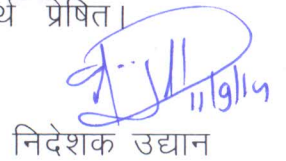 र्थ प्रेषित।
11/9/14
निदेशक उद्यान